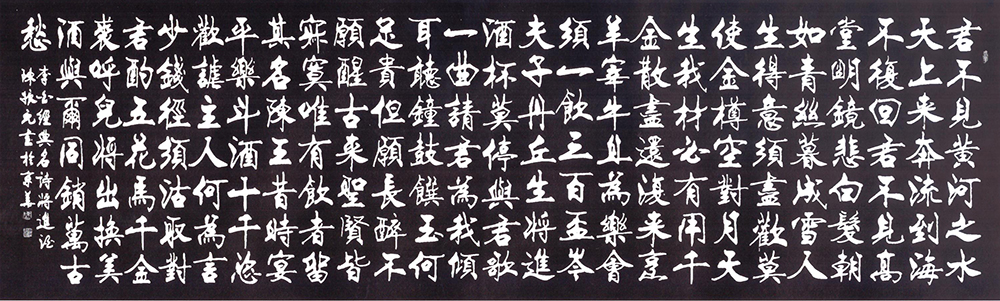 君不見黃河之水
天上来奔流到海
不復回君不見高
堂明鏡悲白髮朝
如青絲暮成雪人
生得意須盡歡莫
使金樽空對月天
生我材必有用千
金散盡還復来烹
羊宰牛且為樂會
須一飲三百盃岑
夫子丹丘生將進
酒杯莫停與君歌
一曲請君為我傾
耳聽鐘鼓饌玉何
足貴但願長醉不
願醒古来聖賢皆
寂寞唯有飲者留
其名陳王昔時宴
平樂斗酒十千恣
歡謔主人何為言
少錢徑須沽取對
君酌五花馬千金
裘呼兒將出換美
酒與爾同銷萬古
愁
李白經典名詩將進酒
陳振書於